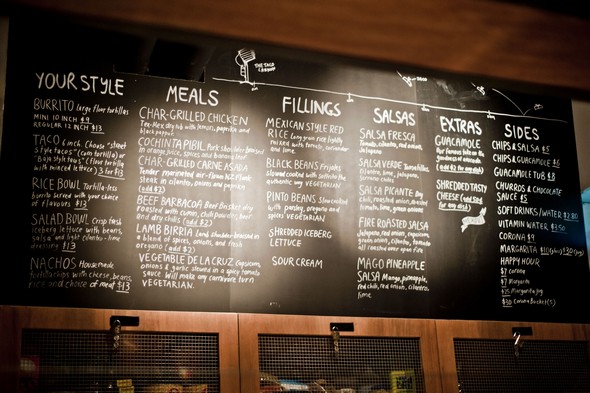 THE TACO
YOUR STYLE
BURRITO large flour tortillas
MINI 10 INCH $9
REGULAR 12 INCH $13
TACO 6 inch. Choose "street
style tacos" (corn tortilla) or
"Baja style tacos" (flour tortilla
with minced lettuce) 3 for $13
RICE BOWL Tortilla-less
burrito served with your choice
of flavours $13
SALAD BOWL Crisp fresh
iceberg lettuce with beans,
salsa and the cilantro-lime
dressing $13
NACHOS Housemade
tortilla chips with cheese, beans,
rice and choice of meat $13
MEALS
CHAR-GRILLED CHICKEN
Tex-Mex dry rub with tomato, paprika and
black pepper
COCHINTA PIBIL Pork shoulder braised
in orange juice, spices and banana leaf
CHAR-GRILLED CARNE ASADA
Tender marinated air-flown
steak in cilantro, onions and paprika
(add $2)
BEEF BARBACOA Beef Brisket dry
roasted with cumin, chili powder
and dry chilis (add $2)
LAMB BIRRIA Lamb shoulder braised in
a blend of spices, onions, and fresh
oregano (add $2)
VEGETABLE DE LA CRUZ Capsicum,
onions & garlic stewed in a spicy tomato
sauce. Will make any carnivore turn
VEGETARIAN.
FILLINGS
MEXICAN STYLE RED
RICE Long grain rice lightly
mixed with tomato,
and lime
BLACK BEANS Frijoles
slowed cooked with
authentic way VEGETARIAN
PINTO BEANS Slow cooked
with pasilla, oregano and
spices VEGETARIAN
SHREDDED ICEBERG
LETTUCE
SOUR CREAM
SALSAS
SALSA FRESCA
Tomato, cilantro, red onion,
Jalapeno
SALSA VERDE Tomatillo,
cilantro, lime, jalapeno,
SALSA PICANTE Dry
chili, roasted onion, blackened
tomato, lime, green onions
FIRE ROASTED SALSA
Jalapeno, red onion,
green onion, cilantro, tomato
all roasted over open fire
MAGO PINEAPPLE
SALSA Mango, pineapple,
red chili, red onion, cilantro,
lime
EXTRAS
GUACAMOLE
(add $2 for any dish)
SHREDDED TASTY
CHEESE (add
for any dish)
SIDES
CHIPS & SALSA $5
CHIPS & GUACAMOLE $6
GUACAMOLE TUB $8
CHURROS & CHOCOLATE
SAUCE $5
SOFT DRINKS/WATER $2.80
VITAMIN WATER $3.50
CORONA $9
MARGARITA $10 (glass) $30 (jug)
HAPPY HOUR
$7 Corona
$7 Margarita
$25 Margarita jug
$30 Corona Bucket (5)